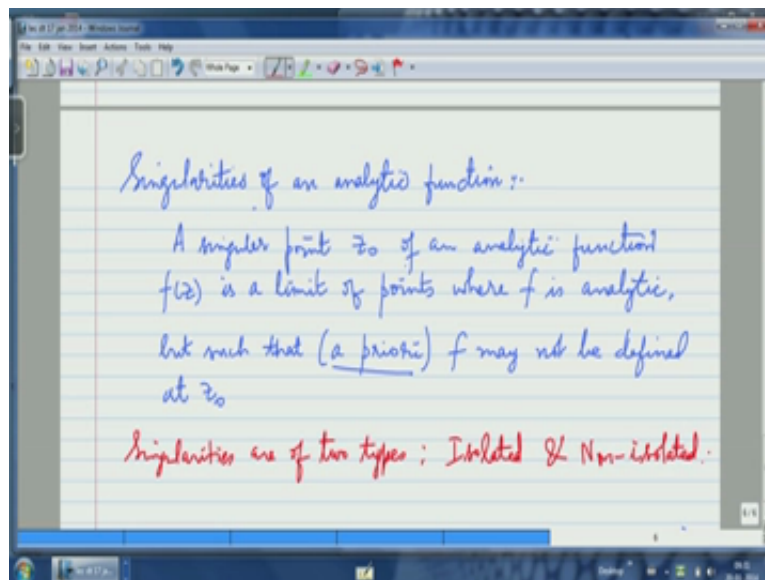 lec dt 17 jan 2014 - Windows Journal
File Edit View Insert Actions Tools Help
Whole Page
Singularities of an analytic function :-
A singular point z₀ of an analytic function
f(z) is a limit of points where f is analytic,
but such that (a priori) f may not be defined
at z₀
Singularities are of two types : Isolated & Non-isolated.
6/6
6
Desktop